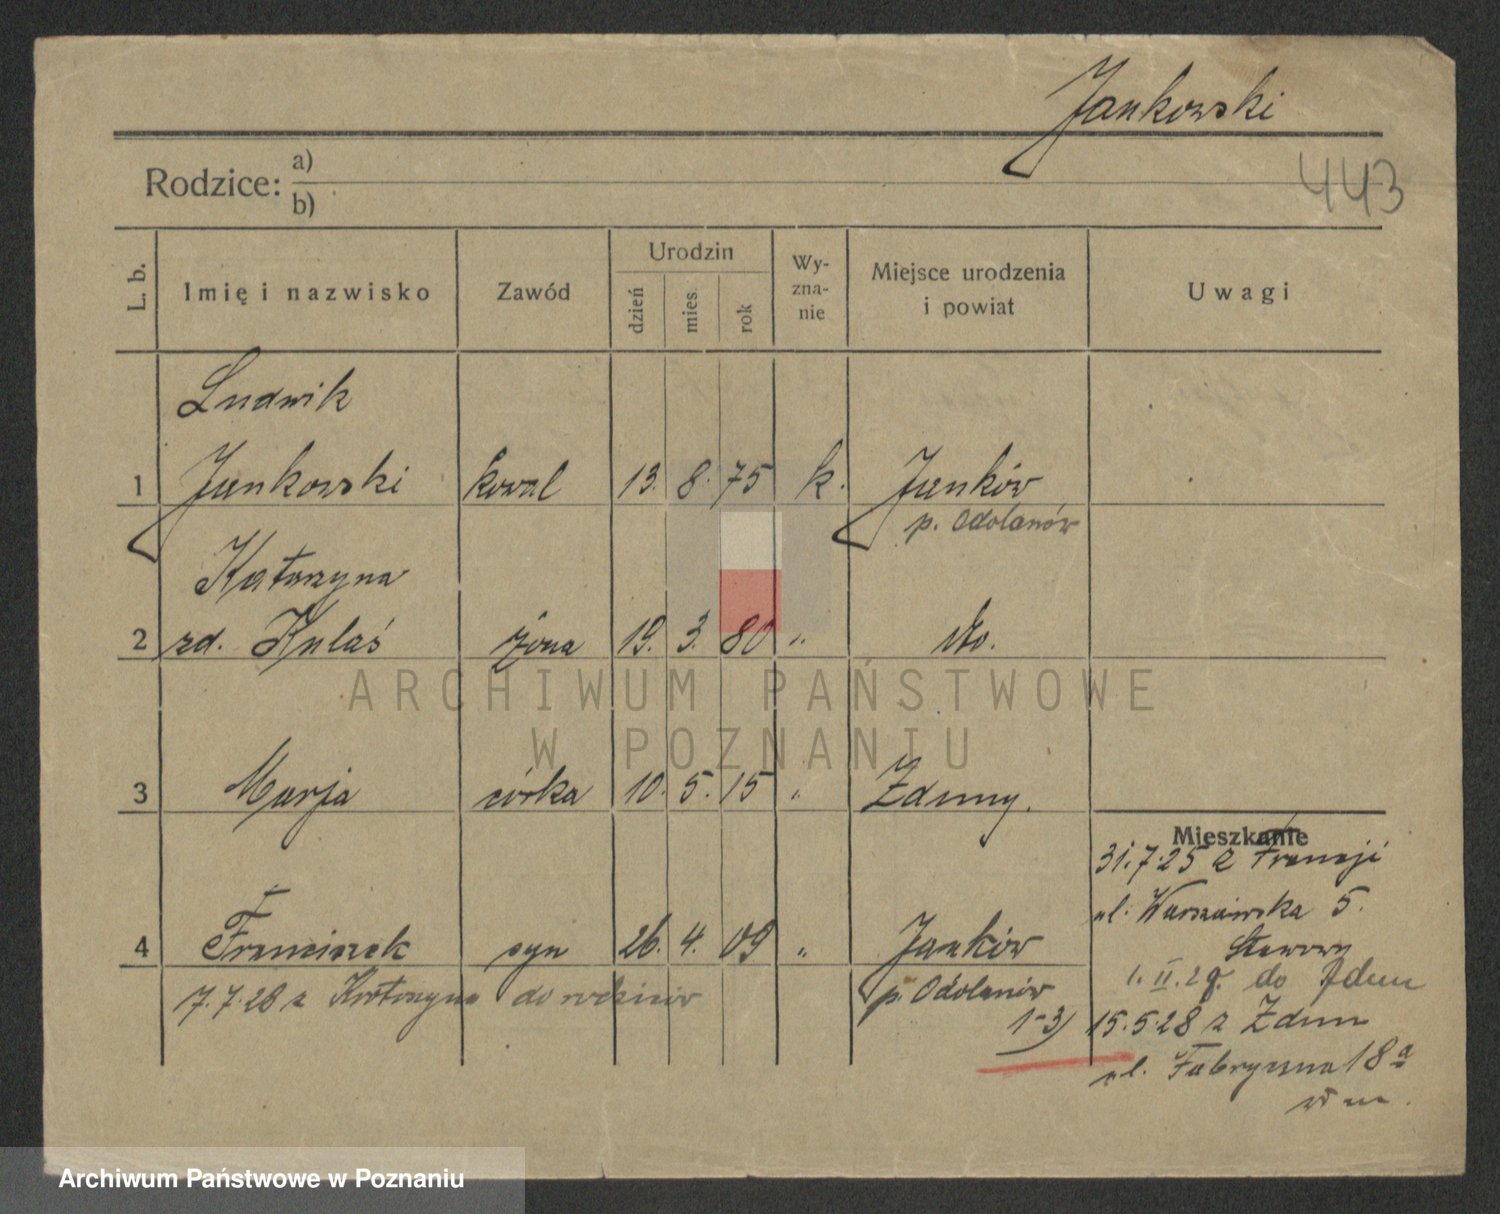 Jankowski
443
Rodzice: a)
b)
L. b.
Imię i nazwisko
Zawód
Urodzin
dzień
mies.
rok
Wy-
zna-
nie
Miejsce urodzenia
i powiat
Uwagi
Ludwik
1 Jankowski kowal 13. 8. 75 k. Janków
p. Odolanów
Katarzyna
2 zd. Kulaś żona 19. 3. 80 " dto.
3 Marja córka 10. 5. 15 " Zduny.
Mieszkanie
31.7.25 z Francji
ul. Warszawska 5.
4 Franciszek syn 26. 4. 09 " Janków
1. II. 28. do Zdun
7.7.28 z Krotoszyna do rodziców
p. Odolanów
1-3) 15.5.28 z Zdun
ul. Fabryczna 18a
w m.
ARCHIWUM PAŃSTWOWE
W POZNANIU
Archiwum Państwowe w Poznaniu